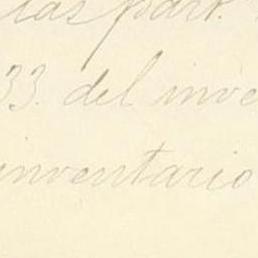 las part.
33. del inve
inventario